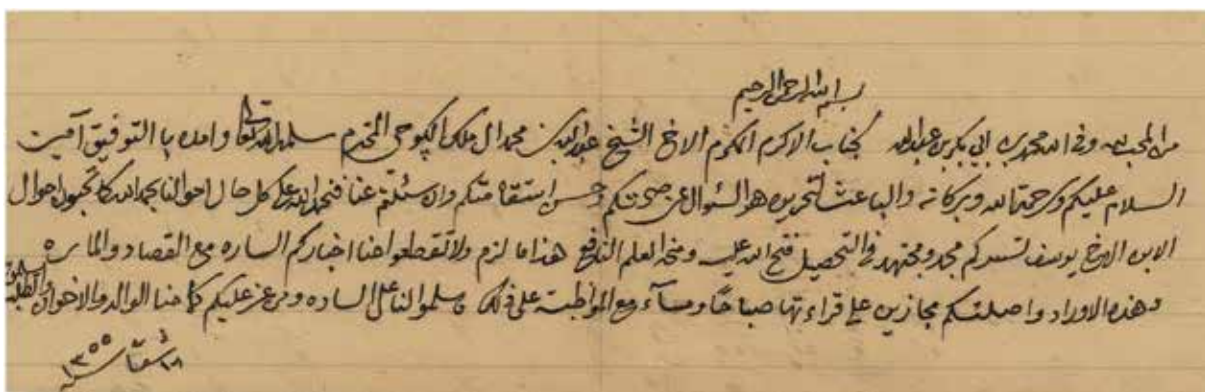 بسم الله الرحمن الرحيم
من المحب لله وفي الله محمد بن ابي بكر بن عبدالله لجناب الاكرم المكرم الاخ الشيخ عبدالله بن محمد ال ملك المحترم سلمه الله تعالى وامده با التوفيق آمين
السلام عليكم ورحمة الله وبركاته والباعث لتحريره هو السئوال عن صحتكم وحسن استقامتكم وان سئلتم عنا فنحمد الله على كل حال احوالنا بحمد الله كما تحبون احوال
الابن الاخ يوسف تسركم مجد ومجتهد في التحصيل فتح الله عليه ومنحه العلم النافع هذا ما لزم ولا تقطعوا عنا اخباركم الساره مع القصاد والماره
وهذه الاوراد واصلتكم مجازين على قراءتها صباحًا ومسآء مع المواظبة على ذلك وسلموا لنا على الساده ومن عز عليكم كما منا الوالد والاخوان والطلبة
سنه ١٣٥٥